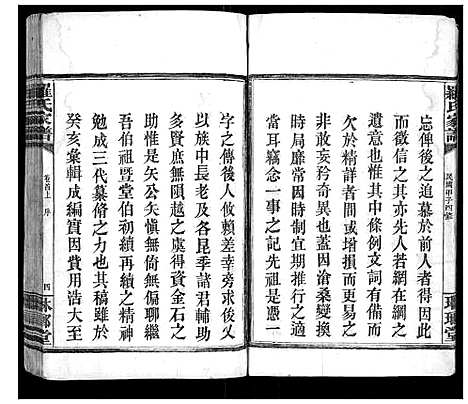 羅氏家譜
民國甲子四修
忘俾後之追慕於前人者得因此
而猶想其之亦先人若網在綱之
遺意也而其中條例文詞或有前
欠於精詳者間或增損而更易之
非敢妄矜奇異也蓋因滄桑變換
時局靡常因時制宜期推行之適
當耳竊念先祖
是憑一
字之傳後人攸賴差幸秀求後父
以族中長老及各昆季諸君輔助
多賢庶無隕越之處得資金石之
成惟是矢公矢慎無倚無偏聊繼
吾伯祖暨堂伯初續再續之精神
勉成三代纂脩之力也其稿雖於
癸亥彙輯成編實因費用浩大至
羅氏家譜
卷首上 序
四